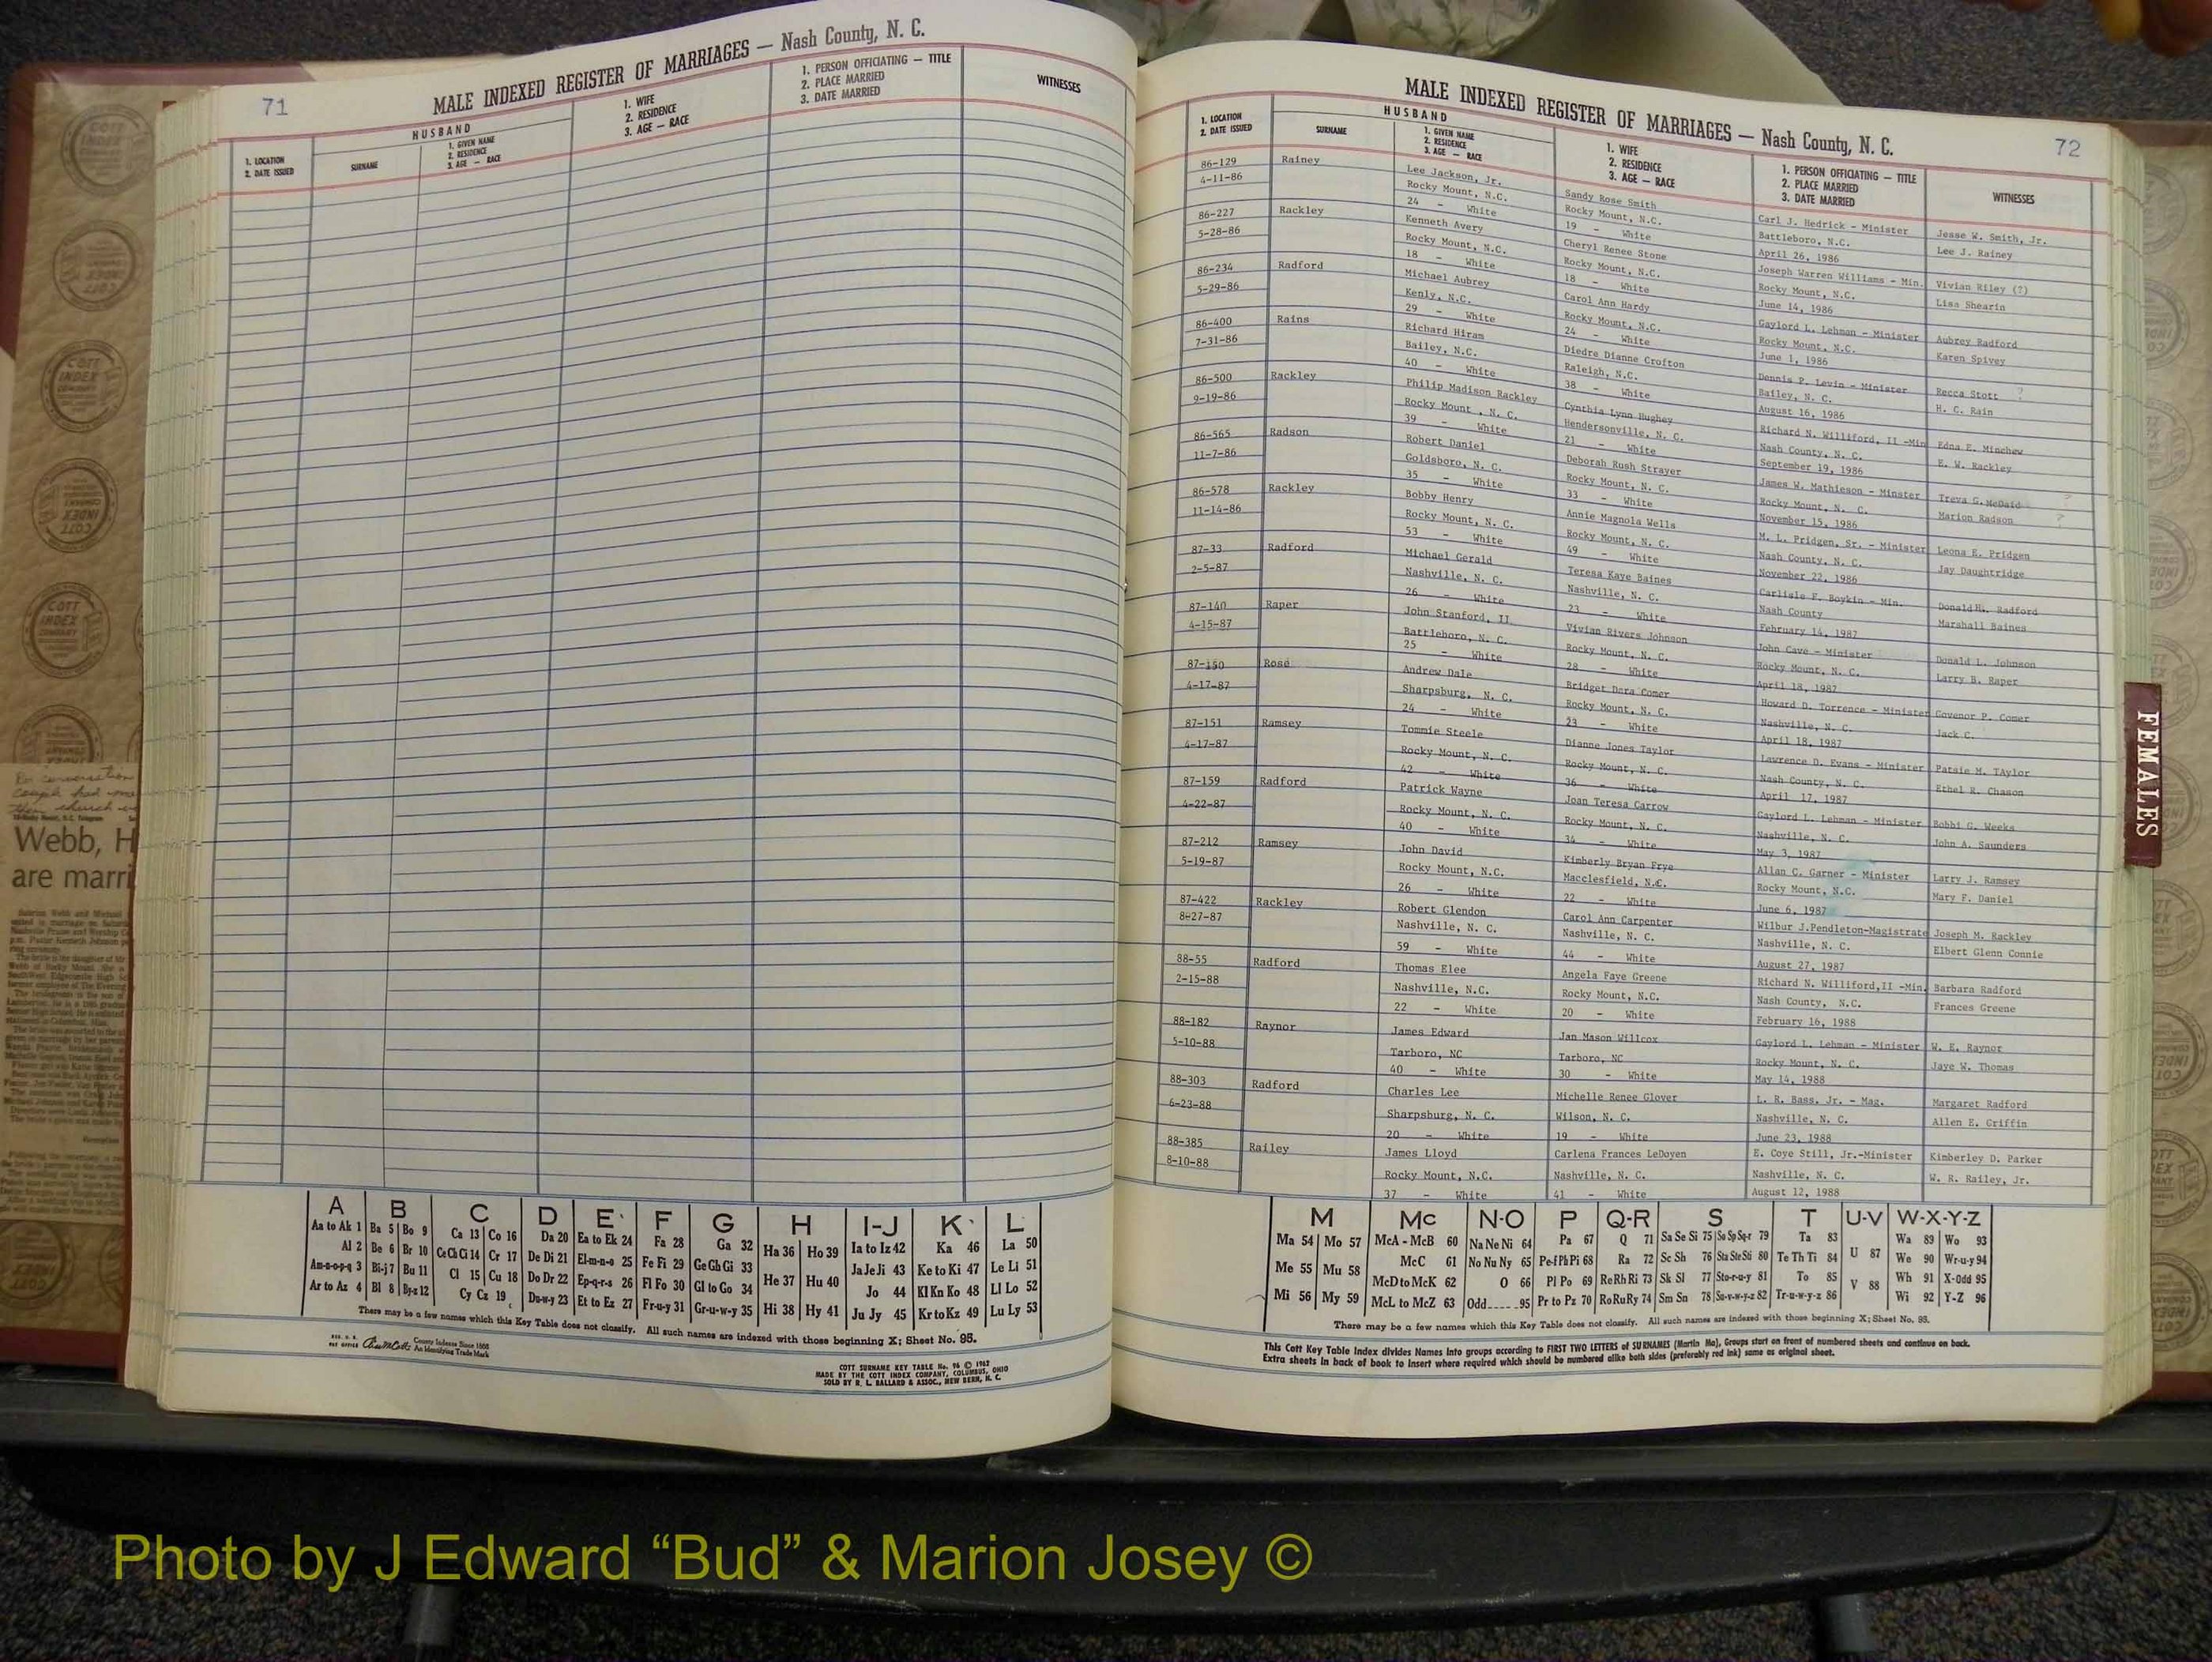 71
MALE INDEXED REGISTER OF MARRIAGES — Nash County, N. C.
1. LOCATION
2. DATE ISSUED
HUSBAND
SURNAME
1. GIVEN NAME
2. RESIDENCE
3. AGE — RACE
1. WIFE
2. RESIDENCE
3. AGE — RACE
1. PERSON OFFICIATING — TITLE
2. PLACE MARRIED
3. DATE MARRIED
WITNESSES
Webb, H
are marri
A B C D E F G H I-J K L
Aa to Ak 1 Ba 5 Bo 9 Ca 13 Co 16 Da 20 Ea to Ek 24 Fa 28 Ga 32 Ha 36 Ho 39 Ia to Iz 42 Ka 46 La 50
Al 2 Be 6 Br 10 Ce Ch Ci 14 Cr 17 De Di 21 El-m-n-o 25 Fe Fi 29 Ge Gh Gi 33 He 37 Hu 40 Ja Je Ji 43 Ke to Ki 47 Le Li 51
Am-n-o-p-q 3 Bi-j 7 Bu 11 Cl 15 Cu 18 Do Dr 22 Ep-q-r-s 26 Fl Fo 30 Gl to Go 34 Hi 38 Hy 41 Jo 44 Kl Kn Ko 48 Ll Lo 52
Ar to Az 4 Bl 8 By-z 12 Cy Cz 19 Du-w-y 23 Et to Ez 27 Fr-u-y 31 Gr-u-w-y 35 Ju Jy 45 Kr to Kz 49 Lu Ly 53
There may be a few names which this Key Table does not classify. All such names are indexed with those beginning X; Sheet No. 95.
County Indexes Since 1888
An Identifying Trade Mark
COTT SURNAME KEY TABLE No. 96 © 1962
MADE BY THE COTT INDEX COMPANY, COLUMBUS, OHIO
SOLD BY R. L. BALLARD & ASSOC., NEW BERN, N. C.
72
MALE INDEXED REGISTER OF MARRIAGES — Nash County, N. C.
1. LOCATION
2. DATE ISSUED
HUSBAND
SURNAME
1. GIVEN NAME
2. RESIDENCE
3. AGE — RACE
1. WIFE
2. RESIDENCE
3. AGE — RACE
1. PERSON OFFICIATING — TITLE
2. PLACE MARRIED
3. DATE MARRIED
WITNESSES
86-129 Rainey Lee Jackson, Jr. Sandy Rose Smith Carl J. Hedrick - Minister Jesse W. Smith, Jr.
4-11-86 Rocky Mount, N.C. Rocky Mount, N.C. Battleboro, N.C. Lee J. Rainey
24 - White 19 - White April 26, 1986
86-227 Rackley Kenneth Avery Cheryl Renee Stone Joseph Warren Williams - Min. Vivian Riley (?)
5-28-86 Rocky Mount, N.C. Rocky Mount, N.C. Rocky Mount, N.C. Lisa Shearin
18 - White 18 - White June 14, 1986
86-234 Radford Michael Aubrey Carol Ann Hardy Gaylord L. Lehman - Minister Aubrey Radford
5-29-86 Kenly, N.C. Rocky Mount, N.C. Rocky Mount, N.C. Karen Spivey
29 - White 24 - White June 1, 1986
86-400 Rains Richard Hiram Diedre Dianne Crofton Dennis P. Levin - Minister Recca Stott ?
7-31-86 Bailey, N.C. Raleigh, N.C. Bailey, N. C. H. C. Rain
40 - White 38 - White August 16, 1986
86-500 Rackley Philip Madison Rackley Cynthia Lynn Hughey Richard N. Williford, II -Min Edna E. Minchew
9-19-86 Rocky Mount , N. C. Hendersonville, N. C. Nash County, N. C. E. W. Rackley
39 - White 21 - White September 19, 1986
86-565 Radson Robert Daniel Deborah Rush Strayer James W. Mathieson - Minster Treva G. McDaid ?
11-7-86 Goldsboro, N. C. Rocky Mount, N. C. Rocky Mount, N. C. Marion Radson ?
35 - White 33 - White November 15, 1986
86-578 Rackley Bobby Henry Annie Magnola Wells M. L. Pridgen, Sr. - Minister Leona E. Pridgen
11-14-86 Rocky Mount, N. C. Rocky Mount, N. C. Nash County, N. C. Jay Daughtridge
53 - White 49 - White November 22, 1986
87-33 Radford Michael Gerald Teresa Kaye Baines Carlisle F. Boykin - Min. Donald H. Radford
2-5-87 Nashville, N. C. Nashville, N. C. Nash County Marshall Baines
26 - White 23 - White February 14, 1987
87-140 Raper John Stanford, II Vivian Rivers Johnson John Cave - Minister Donald L. Johnson
4-15-87 Battleboro, N. C. Rocky Mount, N. C. Rocky Mount, N. C. Larry B. Raper
25 - White 28 - White April 18, 1987
87-150 Rose Andrew Dale Bridget Dora Comer Howard D. Torrence - Minister Govenor P. Comer
4-17-87 Sharpsburg, N. C. Rocky Mount, N. C. Nashville, N. C. Jack C.
24 - White 23 - White April 18, 1987
87-151 Ramsey Tommie Steele Dianne Jones Taylor Lawrence D. Evans - Minister Patsie M. TAylor
4-17-87 Rocky Mount, N. C. Rocky Mount, N. C. Nash County, N. C. Ethel R. Chason
42 - White 36 - White April 17, 1987
87-159 Radford Patrick Wayne Joan Teresa Carrow Gaylord L. Lehman - Minister Bobbi G. Weeks
4-22-87 Rocky Mount, N. C. Rocky Mount, N. C. Nashville, N. C. John A. Saunders
40 - White 34 - White May 3, 1987
87-212 Ramsey John David Kimberly Bryan Frye Allan C. Garner - Minister Larry J. Ramsey
5-19-87 Rocky Mount, N.C. Macclesfield, N.C. Rocky Mount, N.C. Mary F. Daniel
26 - White 22 - White June 6, 1987
87-422 Rackley Robert Glendon Carol Ann Carpenter Wilbur J.Pendleton-Magistrate Joseph M. Rackley
8-27-87 Nashville, N. C. Nashville, N. C. Nashville, N. C. Elbert Glenn Connie
59 - White 44 - White August 27, 1987
88-55 Radford Thomas Elee Angela Faye Greene Richard N. Williford,II -Min. Barbara Radford
2-15-88 Nashville, N.C. Rocky Mount, N.C. Nash County, N.C. Frances Greene
22 - White 20 - White February 16, 1988
88-182 Raynor James Edward Jan Mason Willcox Gaylord L. Lehman - Minister W. E. Raynor
5-10-88 Tarboro, NC Tarboro, NC Rocky Mount, N. C. Jaye W. Thomas
40 - White 30 - White May 14, 1988
88-303 Radford Charles Lee Michelle Renee Glover L. R. Bass, Jr. - Mag. Margaret Radford
6-23-88 Sharpsburg, N. C. Wilson, N. C. Nashville, N. C. Allen E. Griffin
20 - White 19 - White June 23, 1988
88-385 Railey James Lloyd Carlena Frances LeDoyen E. Coye Still, Jr.-Minister Kimberley D. Parker
8-10-88 Rocky Mount, N.C. Nashville, N. C. Nashville, N. C. W. R. Railey, Jr.
37 - White 41 - White August 12, 1988
M Mc N-O P Q-R S T U-V W-X-Y-Z
Ma 54 Mo 57 McA - McB 60 Na Ne Ni 64 Pa 67 Q 71 Sa Se Si 75 So Sp Sq-r 79 Ta 83 U 87 Wa 89 Wo 93
Me 55 Mu 58 McC 61 No Nu Ny 65 Pe-f Ph Pi 68 Ra 72 Sc Sh 76 Sta Ste Sti 80 Te Th Ti 84 V 88 We 90 Wr-u-y 94
McD to McK 62 O 66 Pl Po 69 Re Rh Ri 73 Sk Sl 77 Sto-r-u-y 81 To 85 Wh 91 X-Odd 95
Mi 56 My 59 McL to McZ 63 Odd 95 Pr to Pz 70 Ro Ru Ry 74 Sm Sn 78 Su-v-w-y-z 82 Tr-u-w-y-z 86 Wi 92 Y-Z 96
There may be a few names which this Key Table does not classify. All such names are indexed with those beginning X; Sheet No. 95.
This Cott Key Table Index divides Names into groups according to FIRST TWO LETTERS of SURNAMES (Martin Ma), Groups start on front of numbered sheets and continue on back.
Extra sheets in back of book to insert where required which should be numbered alike both sides (preferably red ink) same as original sheet.
FEMALES
Photo by J Edward “Bud” & Marion Josey ©